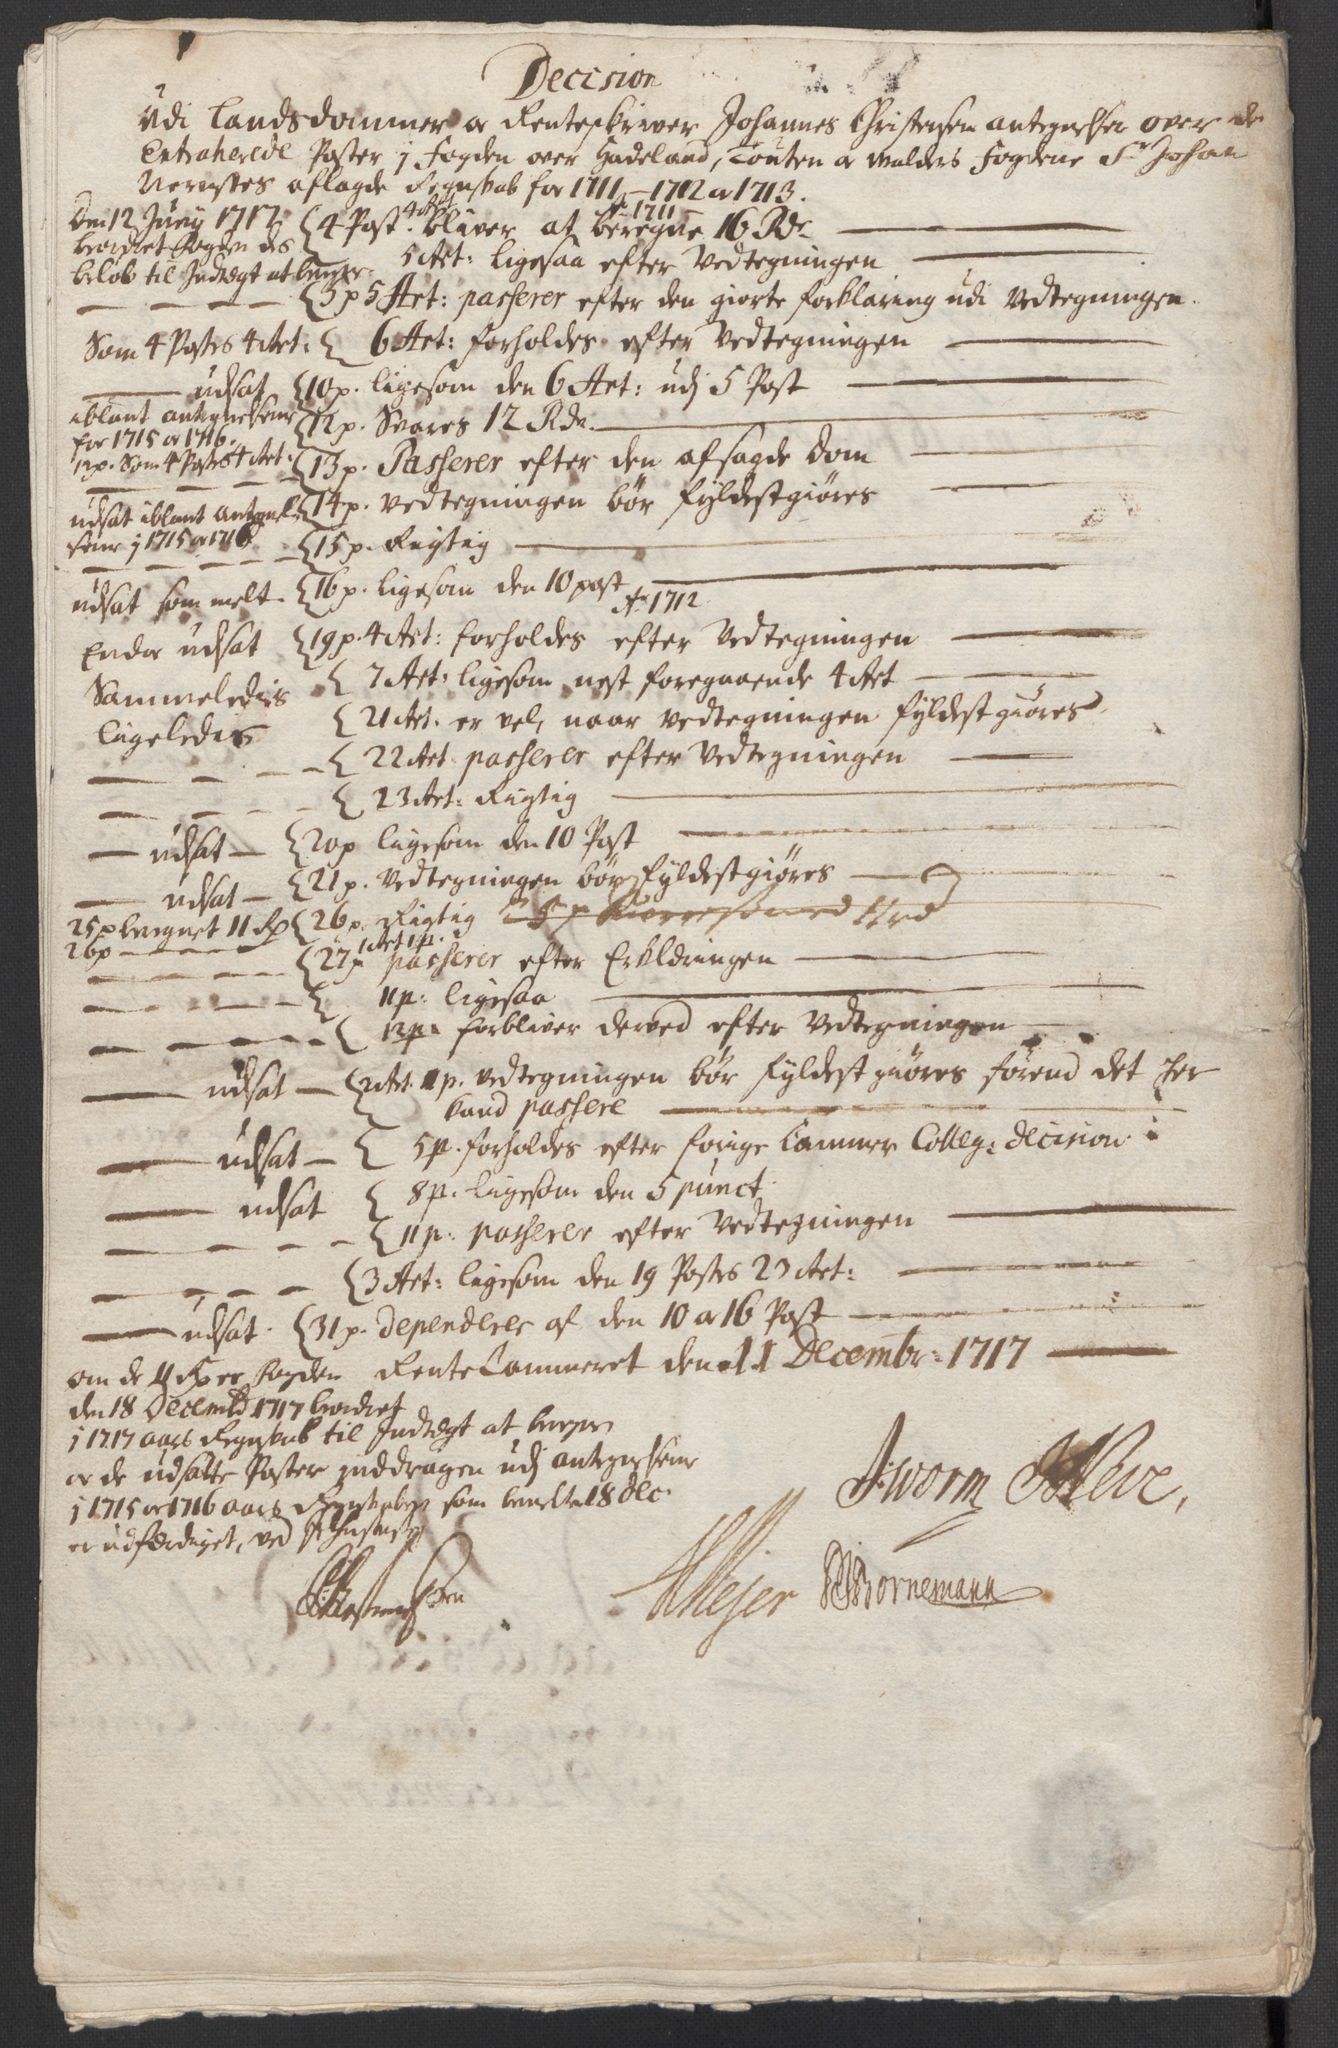 Decision
Udi Landsdommer oc Renteskriver Johannes Christensen antegnelser over de
Extraherede Poster j Fogden over Hadeland, Touten oc Walders Fogderie Sr Johan
aflagde Regnskab for 1711 – 1712 oc 1713.
Ao 1711
Den 12 Junij 1717
Fogden des
beløb til Indtægt at
4 Post. 4 Art: bliver at beregne 16 Rdr
5 Art: ligesaa efter Vedtegningen
5p 5 Art: passerer efter den giorte forklaring udi Vedtegningen.
Som 4 Postes 4 Art: 6 Art: forholdes efter Vedtegningen
udsat 10p. ligesom den 6 Art: udj 5 Post
iblant antegnelserne
for 1715 oc 1716.
12p. Svares 12 Rdr.
12p. Som 4 Postes 4 Art:
13p. Passerer efter den afsagde Dom
14p. Vedtegningen bør fyldestgiøres
udsat iblant
j 1715 oc 1716
15p. Rigtig
udsat som melt 16p. ligesom den 10 post
Ao 1712
Endu udsat 19p. 4 Art: forholdes efter Vedtegningen
Sammeledis 7 Art: ligesom nest foregaaende 4 Art
Ligeledis 21 Art. er vel, naar vedtegningen fyldestgiøres
22 Art passerer efter Vedtegningen
23 Art: Rigtig
udsat 20p ligesom den 10 Post
udsat 21p. Vedtegningen bør fyldestgiøres
25p beregnet 11 26p. Rigtig
26p
27p 1 Art 1p. passerer efter Erkldringen
11p: ligesaa
12p: forbliver derved efter Vedtegningen
udsat 2 Art. 11p. Vedtegningen bør fyldestgiøres førend det her
kand passere
udsat 5p. forholdes efter forige Cammer Colleg: decision
udsat 8p. ligesom den 5 punct.
11p: passerer efter Vedtegningen
3 Art: ligesom den 19 Postes 23 Art:
udsat. 31p. dependerer af den 10 oc 16 Post
Rente Cammeret den 11 Decembr: 1717
om de 11 er fogden
den 18 Decemb 1717
j 1717 aars Regnskab til Indtægt at
oc de udsatte Poster inddragen udj antegnelserne
j 1715 oc 1716 aars som 18 Dec.
er udferdiget, ved
JWorm
Meyer Bornemann